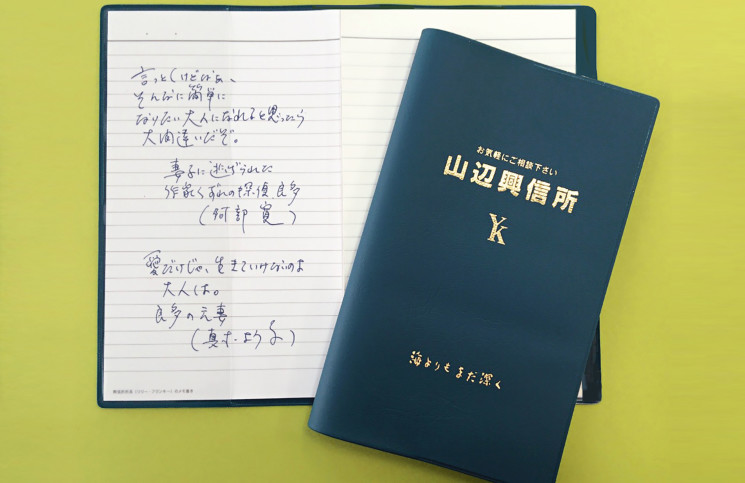 言っとくけどなあ、
そんなに簡単に
なりたい大人になれると思ったら
大間違いだぞ。
妻子に逃げられた
作家くずれの探偵、良多
(阿部寛)
愛だけじゃ、生きていけないのよ
大人は。
良多の元妻
(真木よう子)
お気軽にご相談下さい
山辺興信所
YK
海よりもまだ深く